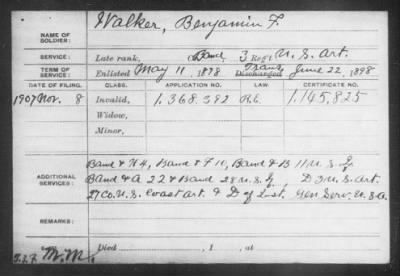 NAME OF SOLDIER: Walker, Benjamin F.
SERVICE: Late rank, Co. Band, 3 Reg't U. S. Art.
TERM OF SERVICE: Enlisted May 11, 1898 Discharged Trans June 22, 1898
DATE OF FILING. CLASS. APPLICATION NO. LAW. CERTIFICATE NO.
1907 Nov. 8 Invalid, 1.368.392 1.145,825
Widow,
Minor,
ADDITIONAL SERVICES: Band & H 4, Band & F 10, Band & B 11 U. S. I.
Band & A 22 & Band 28 U. S. I., D 3 U. S. Art.
27 Co. U. S. Coast Art. & D of Inst. Gen Serv. U. S. A.
REMARKS:
M. M. Died , 1 , at